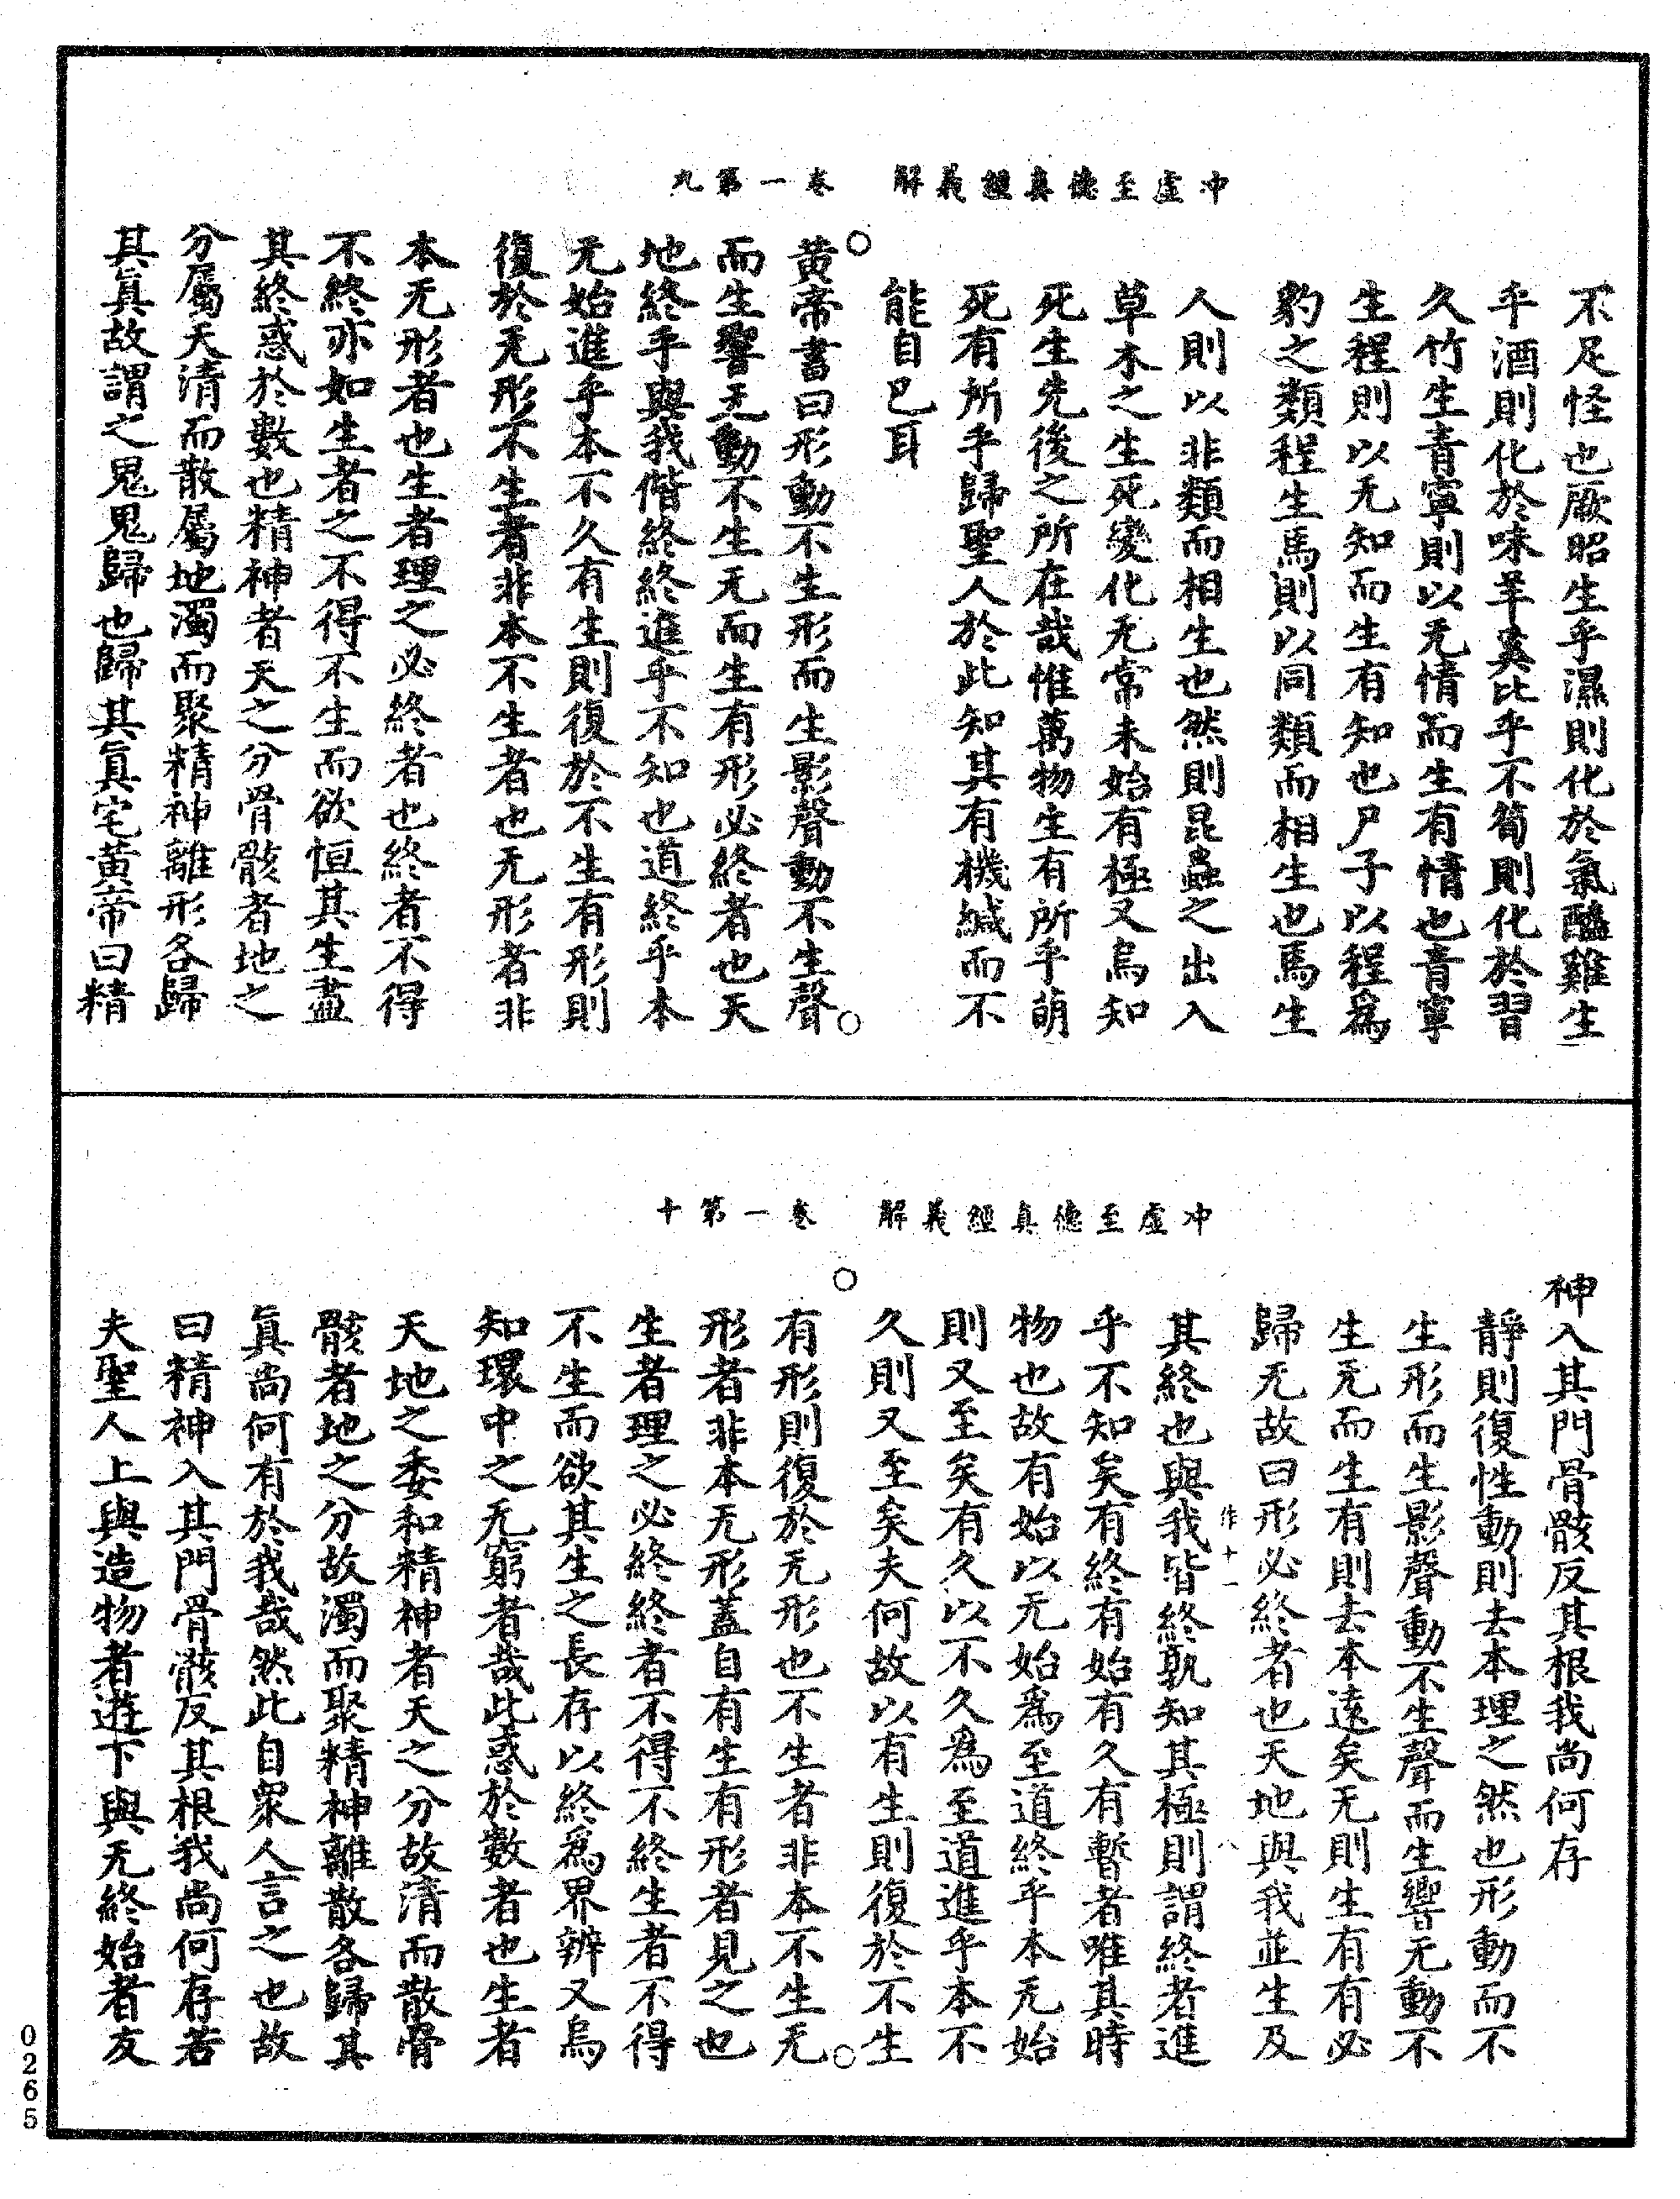 冲虛至德真經義解　卷一第九
不足怪也厥昭生乎濕則化於氣醯雞生
乎酒則化於味羊奚比乎不筍則化於習
久竹生青寧則以无情而生有情也青寧
生程則以无知而生有知也尸子以程爲
豹之類程生馬則以同類而相生也馬生
人則以非類而相生也然則昆蟲之出入
草木之生死變化无常未始有極又烏知
死生先後之所在哉惟萬物生有所乎萌
死有所乎歸聖人於此知其有機緘而不
能自已耳
黄帝書曰形動不生形而生影聲動不生聲
而生響无動不生无而生有形必終者也天
地終乎與我偕終終進乎不知也道終乎本
无始進乎本不久有生則復於不生有形則
復於无形不生者非本不生者也无形者非
本无形者也生者理之必終者也終者不得
不終亦如生者之不得不生而欲恒其生盡
其終惑於數也精神者天之分骨骸者地之
分屬天清而散屬地濁而聚精神離形各歸
其眞故謂之鬼鬼歸也歸其眞宅黄帝曰精
冲虛至德真經義解　卷一第十
神入其門骨骸反其根我尚何存
靜則復性動則去本理之然也形動而不
生形而生影聲動不生聲而生響无動不
生无而生有則去本遠矣无則生有有必
歸无故曰形必終者也天地與我並生及
作十一　八
其終也與我皆終孰知其極則謂終者進
乎不知矣有終有始有久有暫者唯其時
物也故有始以无始爲至道終乎本无始
則又至矣有久以不久為至道進乎本不
久則又至矣夫何故以有生則復於不生
有形則復於无形也不生者非本不生无
形者非本无形蓋自有生有形者見之也
生者理之必終終者不得不終生者不得
不生而欲其生之長存以終爲界辦又烏
知環中之无窮者哉此惑於數者也生者
天地之委和精神者天之分故清而散骨
骸者地之分故濁而聚精神離散各歸其
眞尚何有於我哉然此自衆人言之也故
曰精神入其門骨骸反其根我尚何存若
夫聖人上與造物者遊下與无終始者友
0265